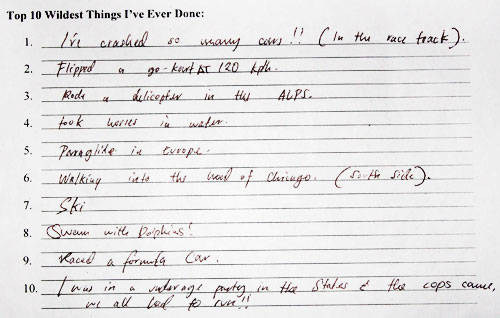 Top 10 Wildest Things I've Ever Done:
1. I've crashed so many cars !! (In the race track).
2. Flipped a go-kart AT 120 kph.
3. Rode a helicopter in the ALPS.
4. took horses in water.
5. Paraglide in Europe.
6. Walking into the hood of Chicago. (South side).
7. Ski
8. Swam with Dolphins!
9. Raced a formula Car.
10. I was in a underage party in the States & the cops came,
we all had to run!!